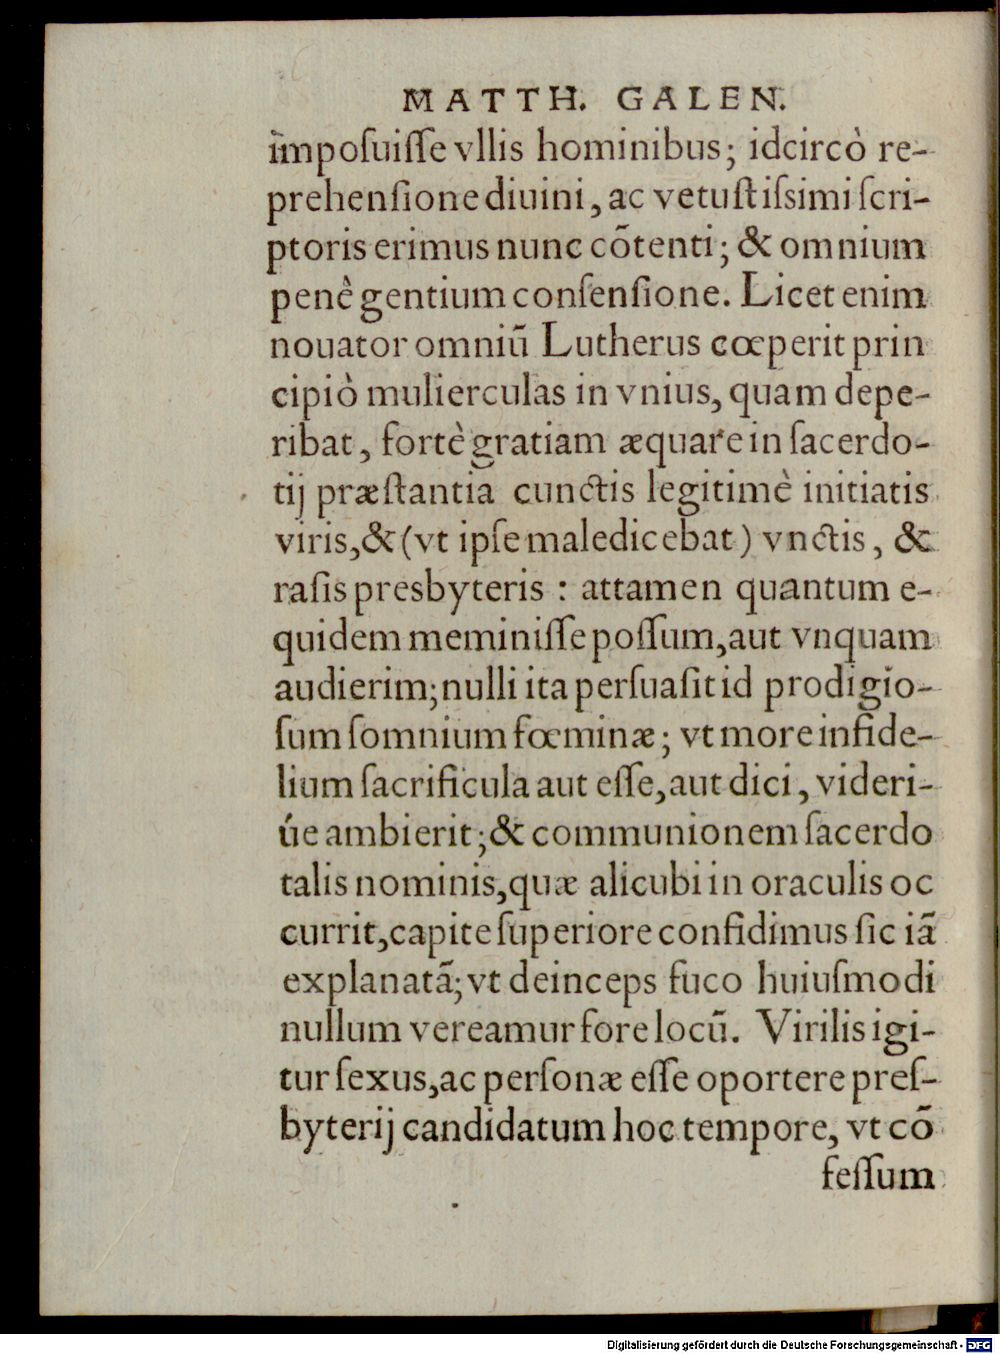 MATTH. GALEN.
imposuisse vllis hominibus; idcircò re-
prehensione diuini, ac vetustissimi scri-
ptoris erimus nunc cōtenti; & omnium
penè gentium consensione. Licet enim
nouator omniū Lutherus cœperit prin
cipiò mulierculas in vnius, quam depe-
ribat, fortè gratiam æquare in sacerdo-
tij præstantia cunctis legitimè initiatis
viris, & (vt ipse maledicebat) vnctis, &
rasis presbyteris : attamen quantum e-
quidem meminisse possum, aut vnquam
audierim; nulli ita persuasit id prodigio-
sum somnium fœminæ; vt more infide-
lium sacrificula aut esse, aut dici, videri-
úe ambierit; & communionem sacerdo
talis nominis, quæ alicubi in oraculis oc
currit, capite superiore confidimus sic iā
explanatā; vt deinceps fuco huiusmodi
nullum vereamur fore locū. Virilis igi-
tur sexus, ac personæ esse oportere pres-
byterij candidatum hoc tempore, vt cō
fessum
Digitalisierung gefördert durch die Deutsche Forschungsgemeinschaft - DFG